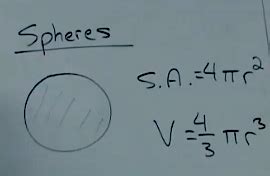 Spheres
S.A.=4πr²
V=4/3 πr³